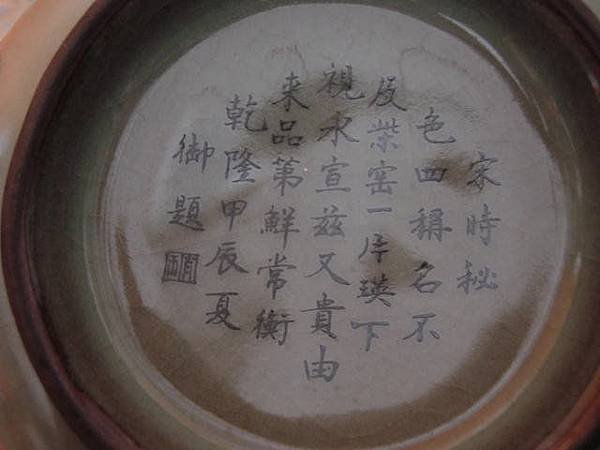 宋時秘
色四稱名不
及柴窑一片瑛下
視永宣兹又貴由
来品第鮮常衡
乾隆甲辰夏
御題